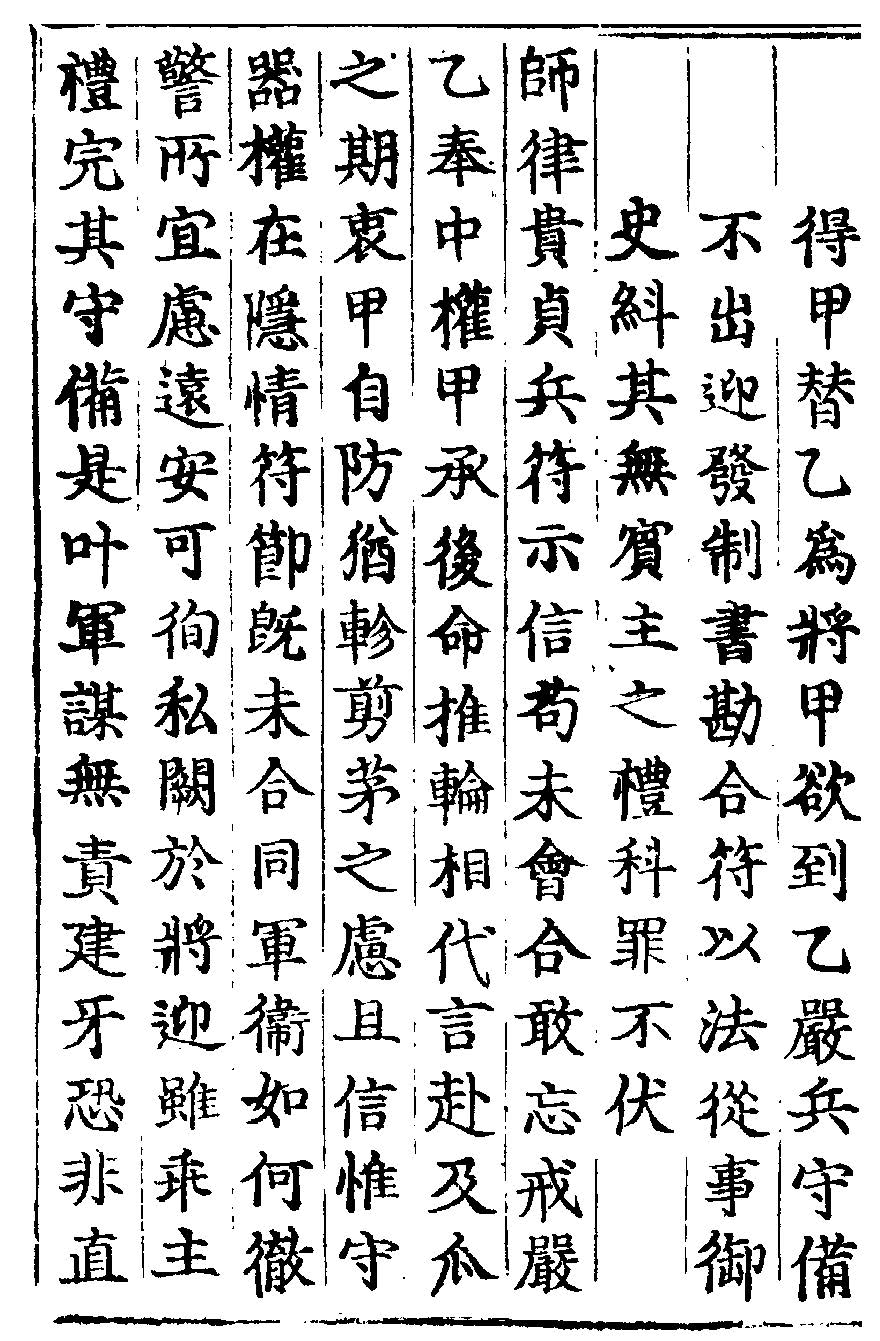 得甲替乙爲將甲欲到乙嚴兵守備
不出迎發制書勘合符以法從事御
史糾其無賔主之禮科罪不伏
師律貴貞兵符示信苟未會合敢忘戒嚴
乙奉中權甲承後命推輪相代言赴及瓜
之期衷甲自防猶軫剪茅之慮且信惟守
器權在隱情符節旣未合同軍衞如何徹
警所宜慮遠安可徇私闕於將迎雖乖主
禮完其守備是叶軍謀無責建牙恐非直